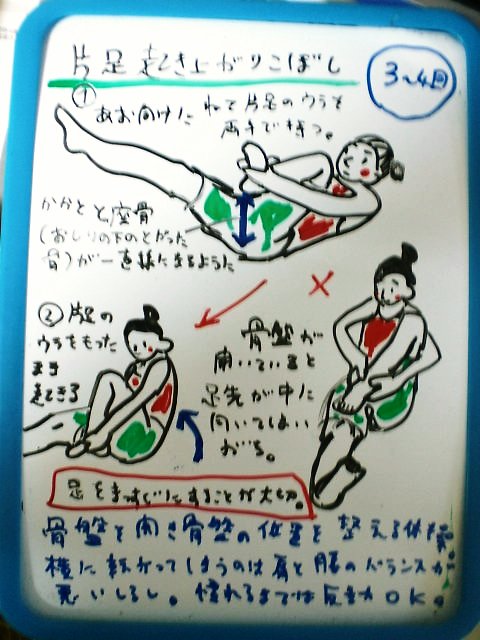 片足起き上がりこぼし
3~4回
① あお向けに ねて片足のウラを
両手で持つ。
かかとと座骨
(おしりの下のとがった
骨)が一直線になるように
② 片足の
ウラをもった
まま
起きる
×
骨盤が
開いていると
足先が中に
向いてしまい
がち。
足をまっすぐにすることが大切。
骨盤を開き骨盤の位置を整える体操。
横に転がってしまうのは肩と腰のバランスが
悪いしるし。慣れるまでは反動OK。